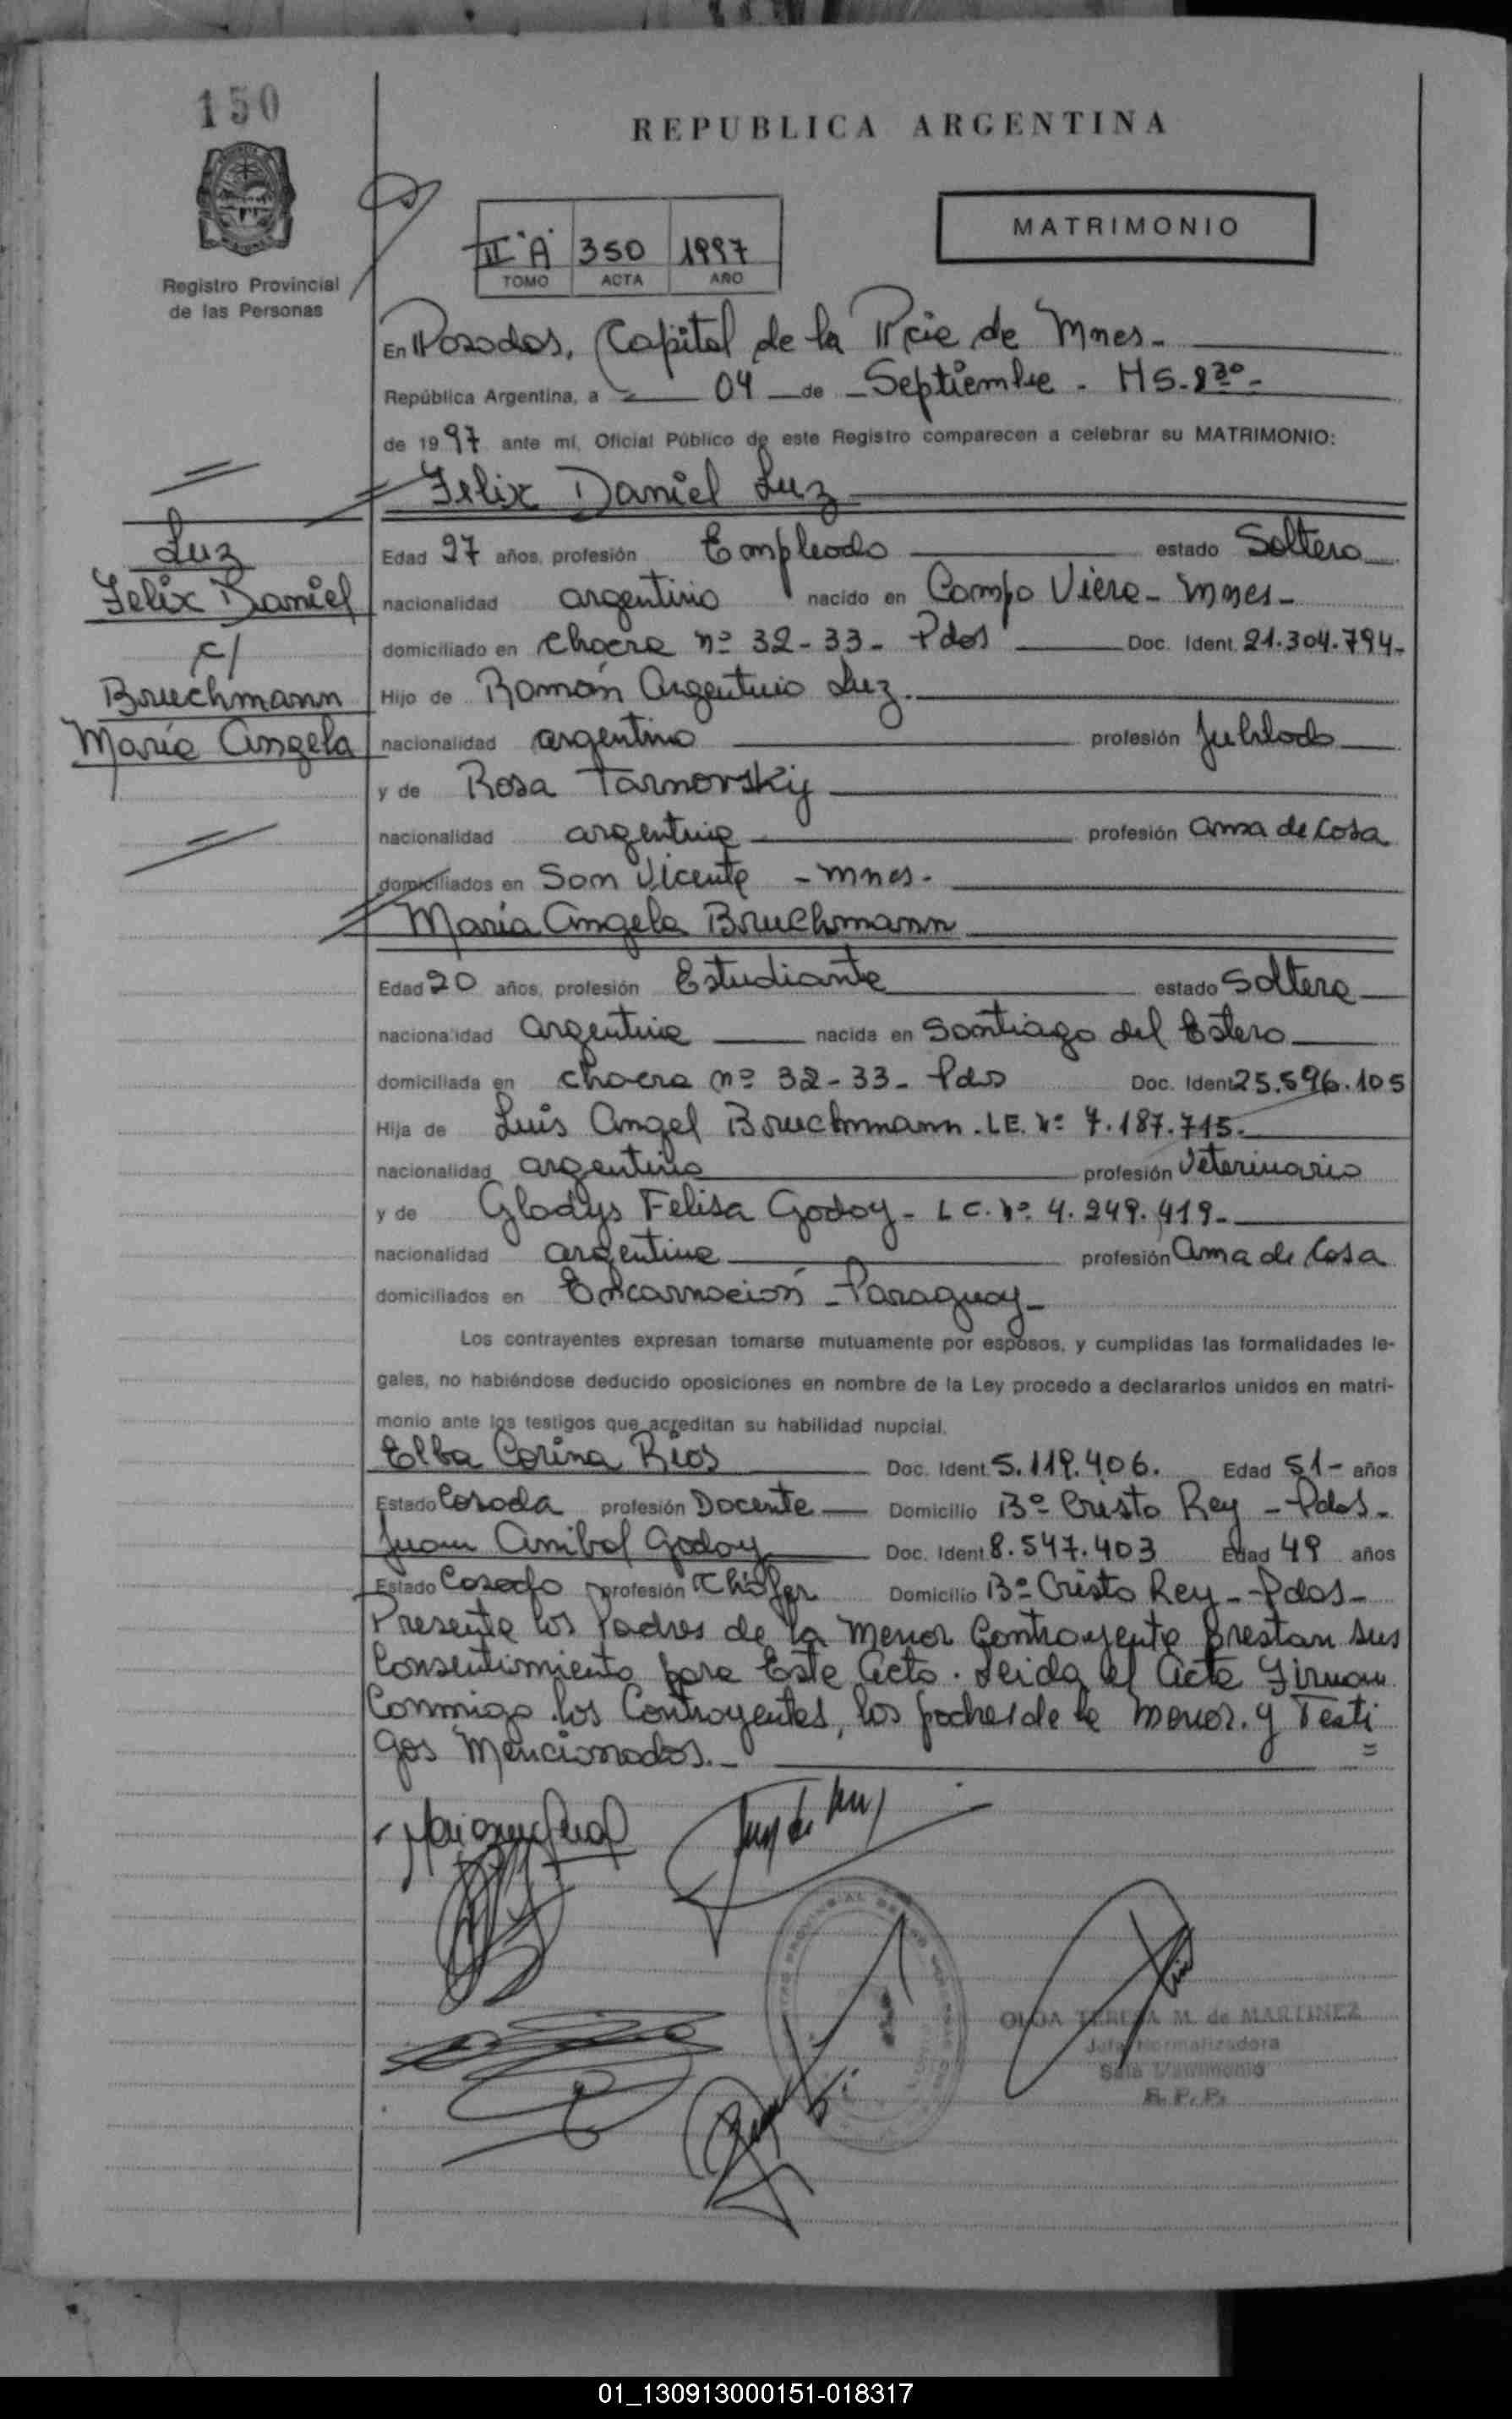 150
REPUBLICA ARGENTINA
MATRIMONIO
II "A" 350 1997
TOMO ACTA AÑO
Registro Provincial
de las Personas
En Posadas, Capital de la Pcie de Mnes-
República Argentina, a 04 de Septiembre - HS-8 30-
de 1997 ante mí, Oficial Público de este Registro comparecen a celebrar su MATRIMONIO:
Felix Daniel Luz
Luz
Felix Daniel
c/
Bruchmann
María Angela
Edad 27 años, profesión Empleado estado Soltero
nacionalidad argentino nacido en Campo Viera - Mnes-
domiciliado en Chacra nº 32-33- Pdas Doc. Ident. 21.304.794-
Hijo de Román Argentino Luz.
nacionalidad argentino profesión Jubilado
y de Rosa Tarnovskij
nacionalidad argentina profesión ama de Casa
domiciliados en San Vicente - Mnes-
María Angela Bruchmann
Edad 20 años, profesión Estudiante estado Soltera
nacionalidad argentina nacida en Santiago del Estero
domiciliada en chacra nº 32-33- Pdas Doc. Ident 25.596.105
Hija de Luis Angel Bruchmann. L.E. Nº 7.187.715-
nacionalidad argentino profesión Veterinario
y de Gladys Felisa Godoy - L C. Nº 4.249.419-
nacionalidad argentina profesión Ama de Casa
domiciliados en Encarnación - Paraguay-
Los contrayentes expresan tomarse mutuamente por esposos, y cumplidas las formalidades le-
gales, no habiéndose deducido oposiciones en nombre de la Ley procedo a declararlos unidos en matri-
monio ante los testigos que acreditan su habilidad nupcial.
Elba Corina Rios Doc. Ident. 5.119.406. Edad 51- años
Estado Casada profesión Docente Domicilio Bº Cristo Rey - Pdas-
Juan Anibal Godoy Doc. Ident. 8.547.403 Edad 49 años
Estado Casado profesión Chófer Domicilio Bº Cristo Rey - Pdas-
Presente los Padres de la Menor Contrayente prestan sus
Consentimiento para Este Acto. Leida el Acta Firman
Conmigo los Contrayentes, los padres de la menor. y Testi
gos Mencionados.-
OLGA TERESA M. de MARTINEZ
Jefa Normalizadora
Sala Matrimonio
R. P. P.
01_130913000151-018317